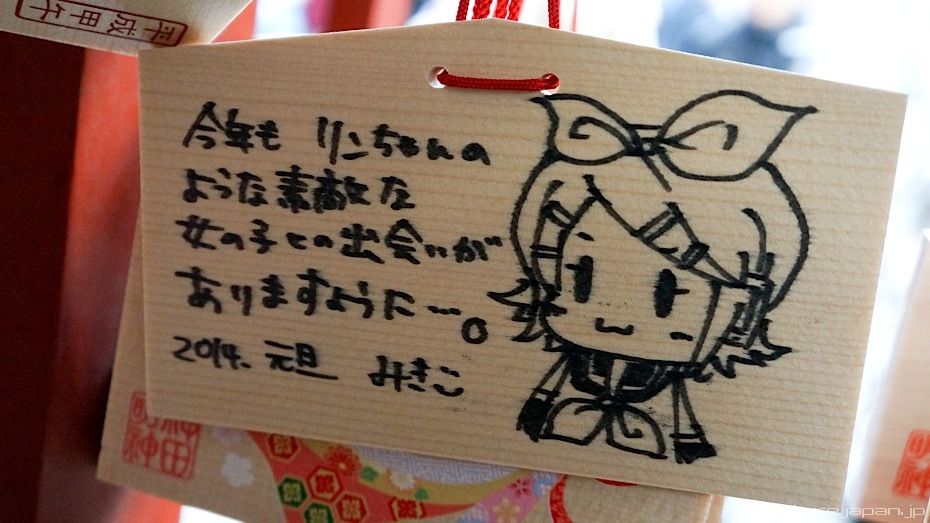 平成甲午
今年も リンちゃんの
ような素敵な
女の子との出会いが
ありますように…。
2014. 元旦 みきこ
神田
明神
japan.jp